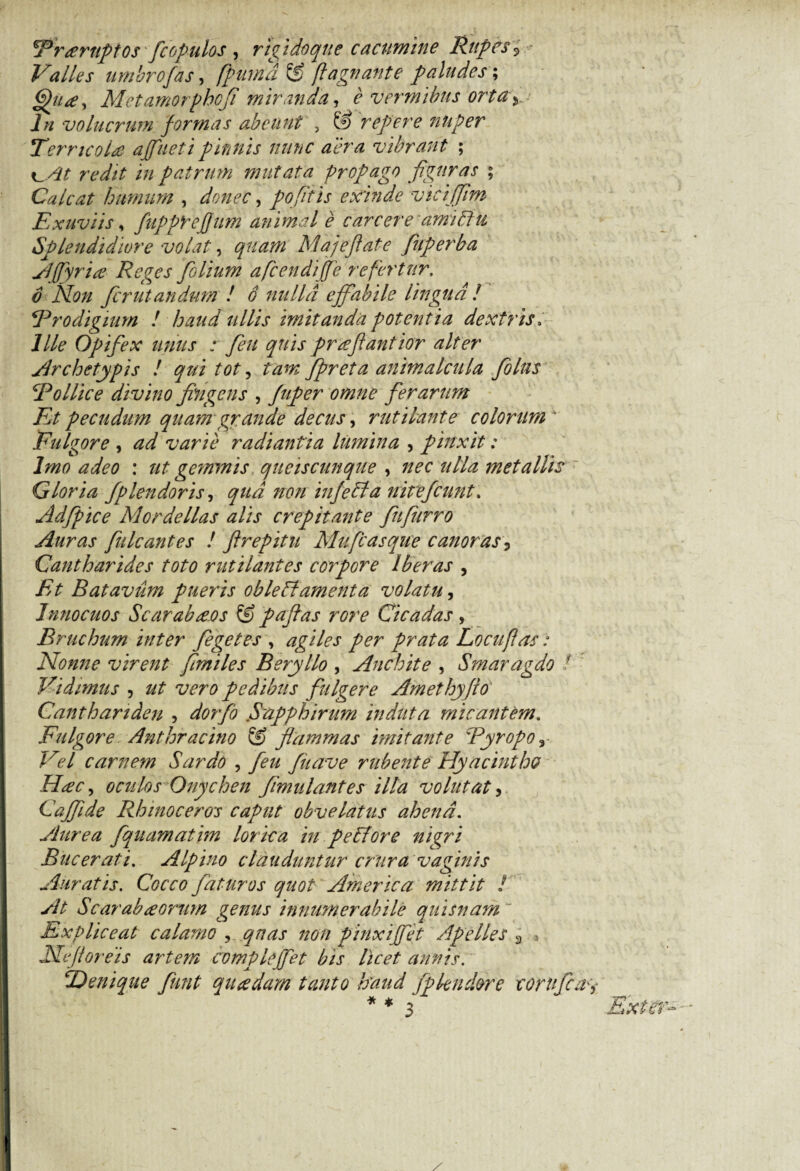 Præruptos ſcopulos, rigidoque cacumine Rupes,
Valles umbroſas, ſpumâ & ſtagnante paludes;
Quæ, Metamorphoſi miranda, è vermibus orta,
In volucrum formas abeunt, & repere nuper
Terricolæ aſſueti pinnis nunc aëra vibrant;
At redit in patrum mutata propago figuras;
Calcat humum, donec, poſitis exinde viciſſim
Exuviis, ſuppreſſum animal è carcere amictu
Splendidiore volat, quam Majeſtate ſuperba
Aſſyriæ Reges ſolium aſcendiſſe refertur.
ô Non ſcrutandum! ô nullâ effabile linguâ!
Prodigium! haud ullis imitanda potentia dextris.
Ille Opifex unus: ſeu quis præſtantior alter
Archetypis! qui tot, tam ſpreta animalcula ſolus
Pollice divino fingens, ſuper omne ferarum
Et pecudum quam grande decus, rutilante colorum
Fulgore, ad variè radiantia lumina, pinxit:
Imo adeo: ut gemmis queiscunque, nec ulla metallis
Gloria ſplendoris, quâ non infecta niteſcunt.
Adſpice Mordellas alis crepitante ſuſurro
Auras ſulcantes! ſtrepitu Muſcasque canoras,
Cantharides toto rutilantes corpore Iberas,
Et Batavûm pueris oblectamenta volatu,
Innocuos Scarabæos & paſtas rore Cicadas,
Bruchum inter ſegetes, agiles per prata Locuſtas:
Nonne virent ſimiles Beryllo, Anchite, Smaragdo!
Vidimus, ut vero pedibus fulgere Amethyſto
Canthariden, dorſo Sapphirum induta micantem.
Fulgore Anthracino & flammas imitante Pyropo,
Vel carnem Sardo, ſeu ſuave rubente Hyacintho
Hæc, oculos Onychen ſimulantes illa volutat,
Caſſide Rhinoceros caput obvelatus ahenâ.
Aurea ſquamatim lorica in pectore nigri
Bucerati. Alpino clauduntur crura vaginis
Auratis. Cocco ſaturos quot America mittit!
At Scarabæorum genus innumerabile quisnam
Expliceat calamo, quas non pinxiſſet Apelles,
Neſtoreis artem compleſſet bis licet annis.
Denique ſunt quædam tanto haud ſplendore coruſca,
* * 3 Exter-